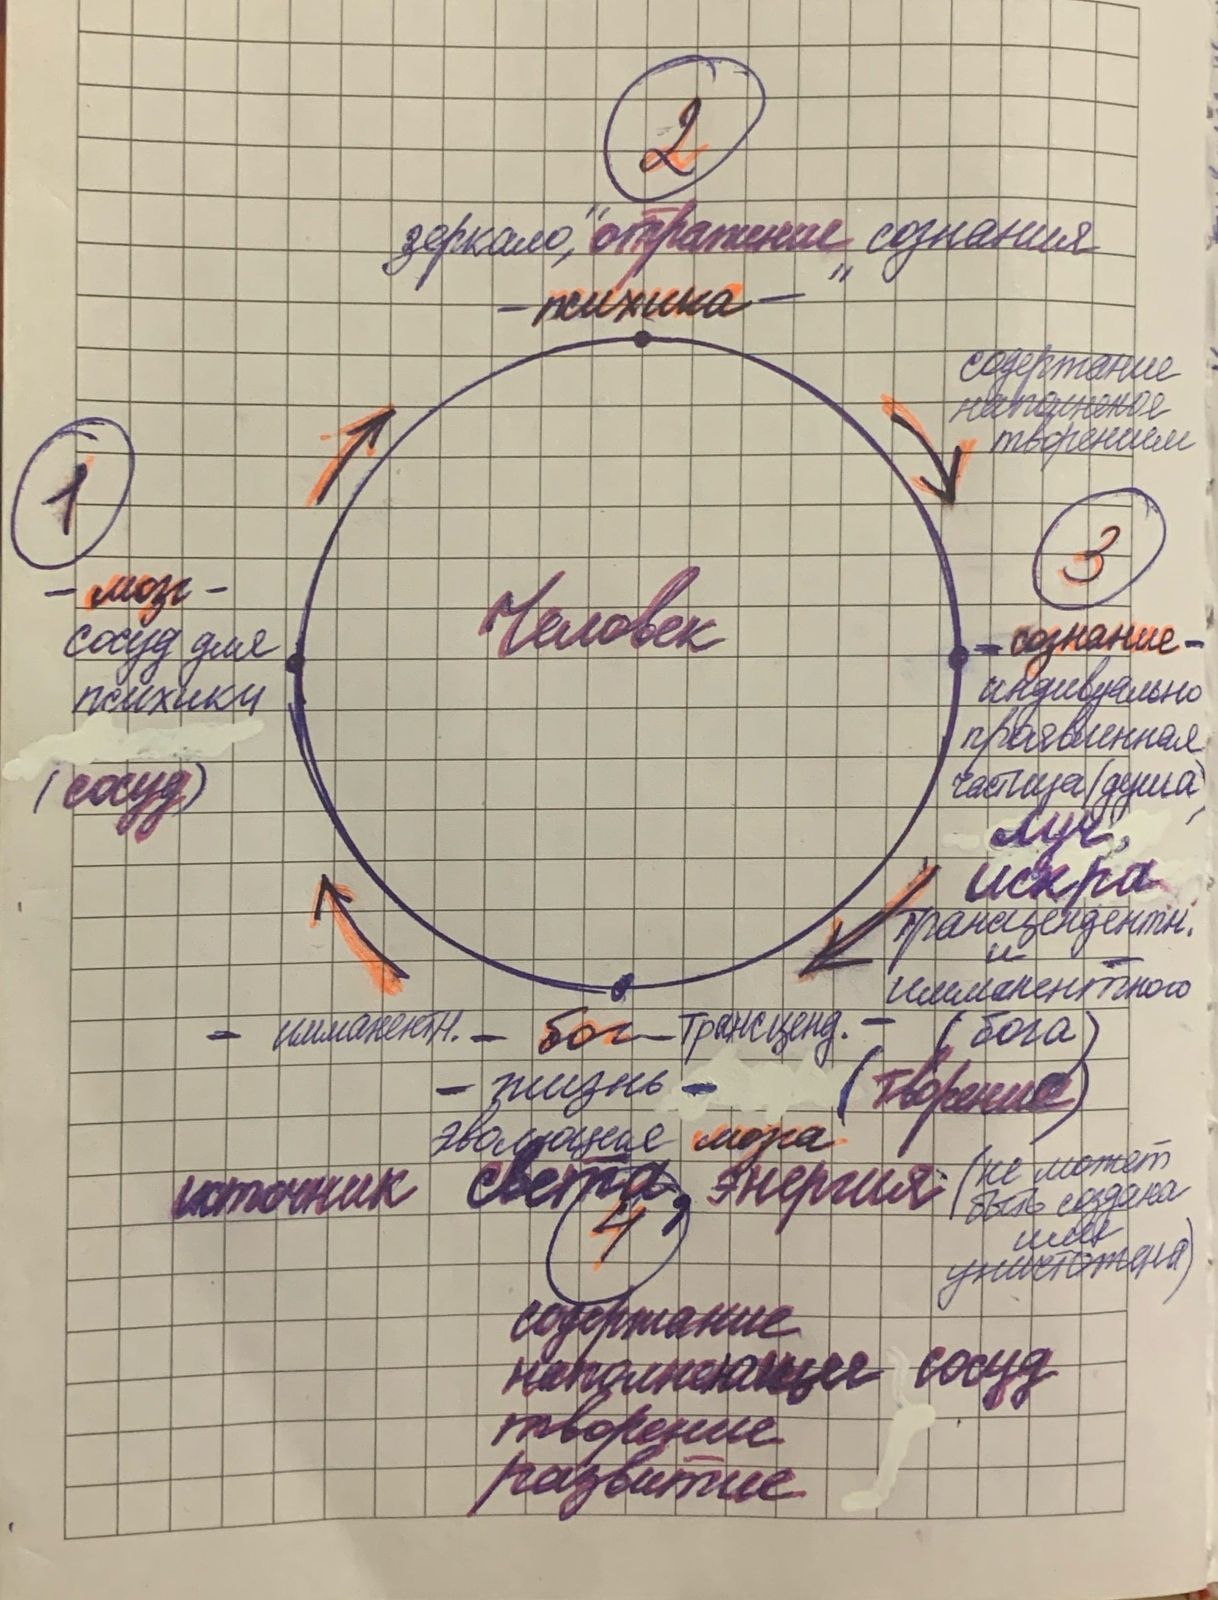 2
зеркало, "отражение сознания
- психика - "
содержание
наполненое
творением
1
- мозг -
сосуд для
психики
(сосуд)
Человек
3
- сознание -
индивуально
проявленная
частица (душа)
луч,
искра
трансцендентн.
и
имманентного
(бога)
(творение)
- имманентн. - бог - трансценд. -
- жизнь -
эволюция мозга
источник света, энергия
(не может
быть создана
или
уничтожена)
4
содержание
наполняющее сосуд
творение
развитие